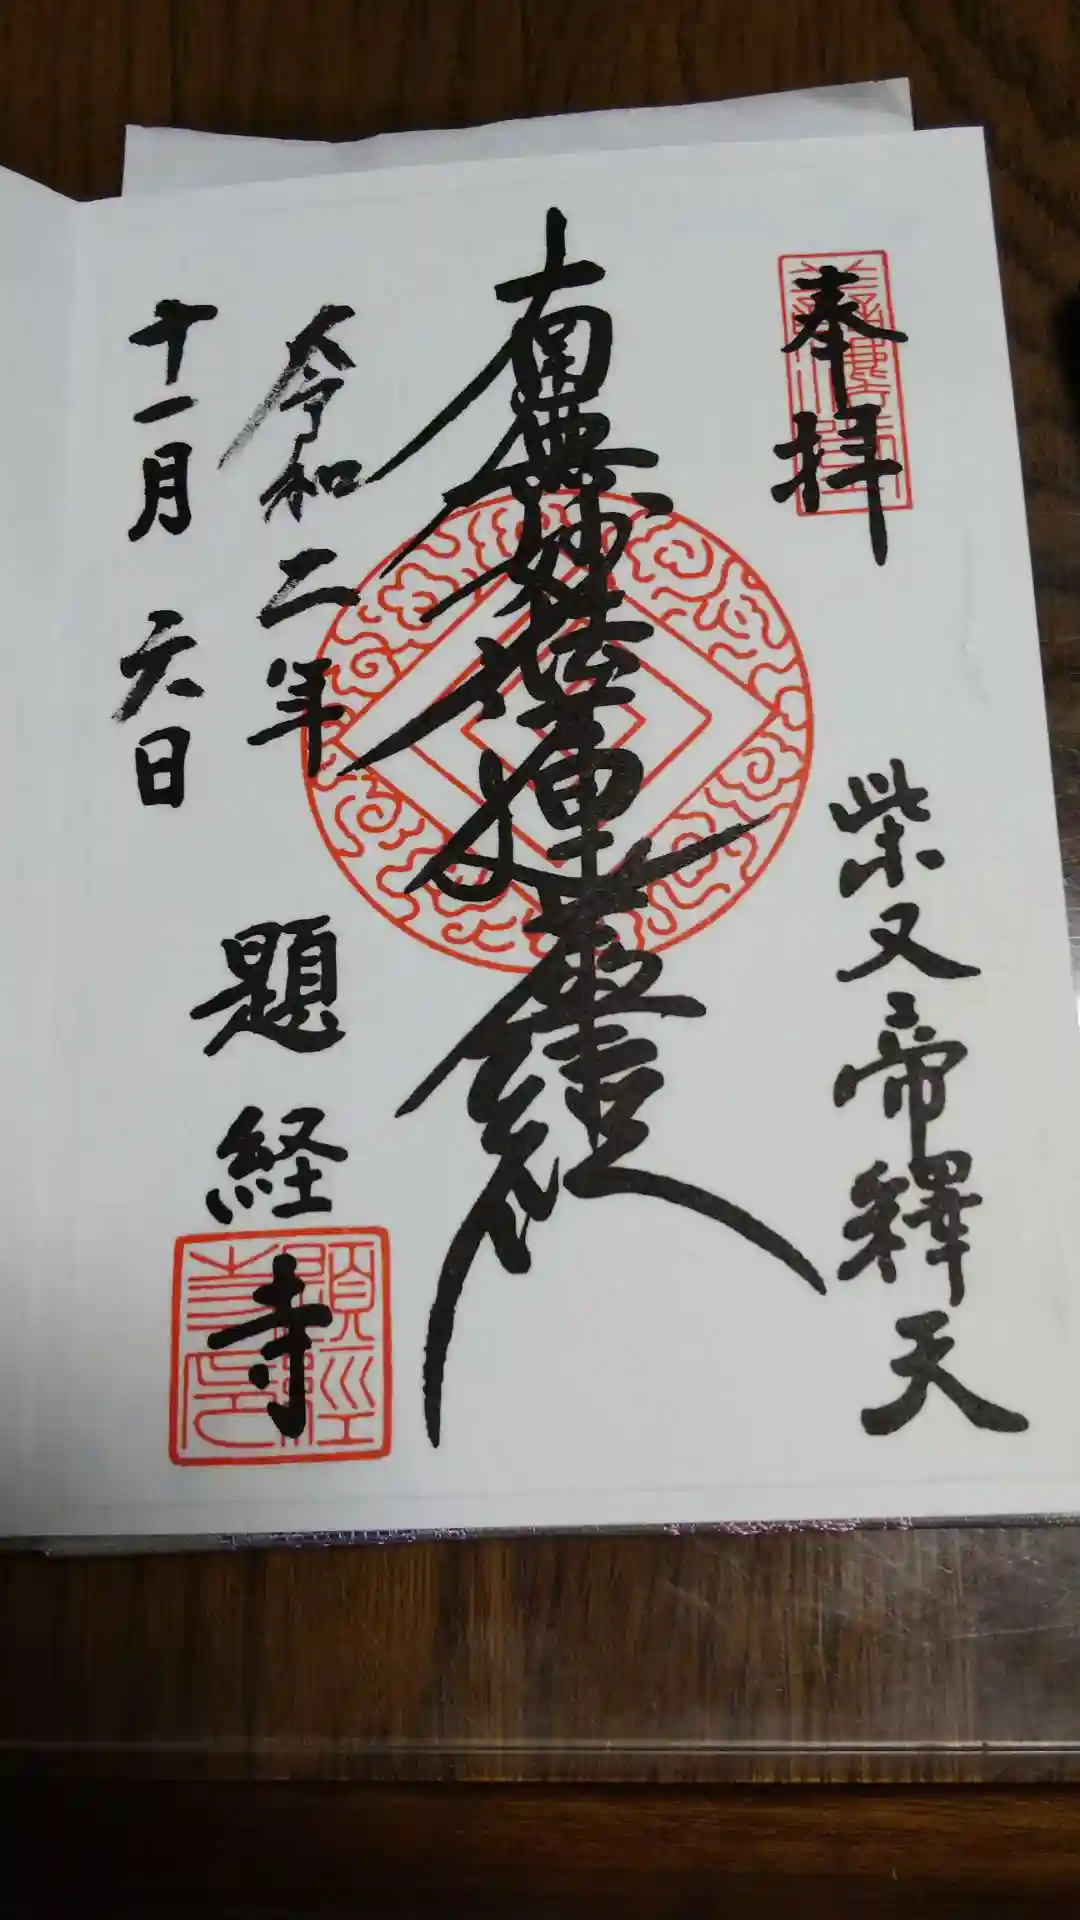 奉拝
柴又帝釋天
南無妙法蓮華經
令和二年
十一月六日
題経寺
題經寺印